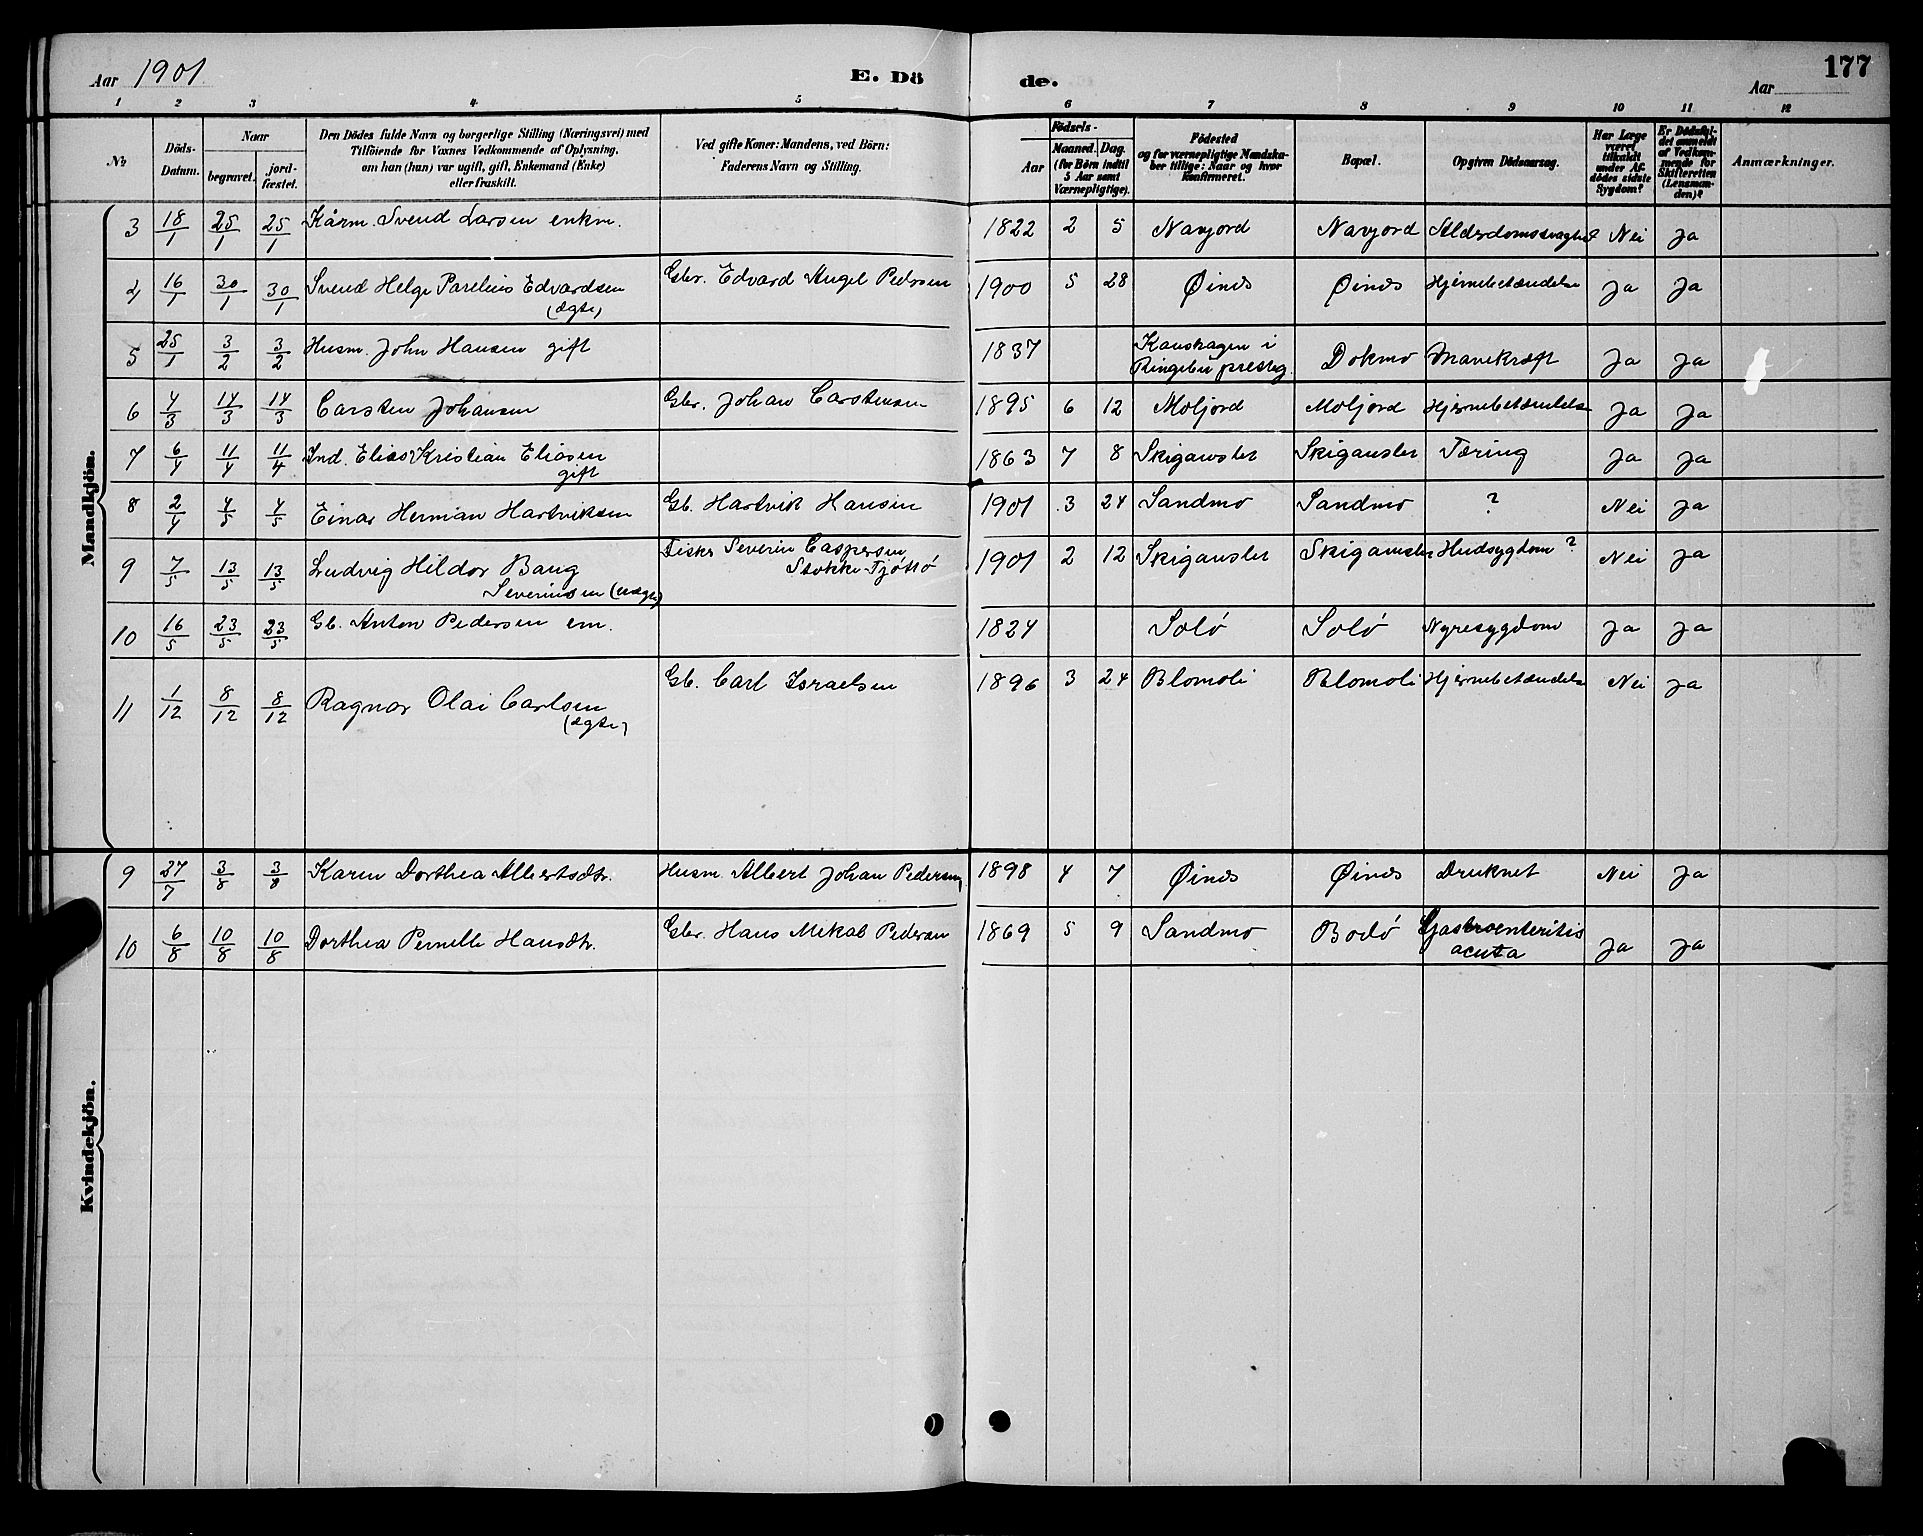 Aar 1901
E. Dö
de.
Aar
177
1 2 3 4 5 6 7 8 9 10 11 12
No
Döds-
Datum.
Naar
begravet.
jord-
fæstet.
Den Dödes fulde Navn og borgerlige Stilling (Næringsvei) med
Tilföiende for Voxnes Vedkommende af Oplysning,
om han (hun) var ugift, gift, Enkemand (Enke)
eller fraskilt.
Ved gifte Koner: Mandens, ved Börn:
Faderens Navn og Stilling.
Födsels-
Aar
Maaned. Dag.
(for Börn indtil
5 Aar samt
Værnepligtige).
Födested
og for værnepligtige Mandska-
ber tillige: Naar og hvor
konfirmeret.
Bopæl.
Opgiven Dödsaarsag.
Har Læge
været
tilkaldt
under Af-
dödes sidste
Sygdom?
Er Dödsfal-
det anmeldt
af Vedkom-
mende for
Skifteretten
(Lensman-
den)?
Anmærkninger.
Mandkjön.
3 18/1 25/1 25/1 Kårm. Svend Larsen enkm. 1822 2 5 Navjord Navjord Alderdomssvaghet Nei Ja
4 16/1 30/1 30/1 Svend Helge Parelius Edvardsen Gbr. Edvard Angel Pedersen 1900 5 28 Øinæs Øinæs Hjernebetændelse Ja Ja
(ægte)
5 25/1 3/2 3/2 Husm. John Hansen gift 1837 i Dokmo Mavekræft Ja Ja
Ringebu presteg.
6 4/3 14/3 14/3 Carsten Johansen Gbr. Johan Carstensen 1895 6 12 Moljord Moljord Hjernebetændelse Ja Ja
7 6/4 11/4 11/4 Ind. Elias Kristian Eliasen 1863 7 8 Skigansler Skigansler Tæring Ja Ja
gift
8 2/4 4/5 4/5 Einar Herman Hartviksen Gb. Hartvik Hansen 1901 3 24 Sandmo Sandmo ? Nei Ja
9 7/5 13/5 13/5 Ludvig Hildor Bang Fisker Severin Caspersen 1901 2 12 Skigansler Skigansler Hudsygdom? Nei Ja
Severinsen (uægte) Stokke Tjøttø
10 16/5 23/5 23/5 Gb. Anton Pedersen em. 1824 Solö Solö Nyresygdom Ja Ja
11 1/12 8/12 8/12 Ragnar Olai Carlsen Gb. Carl Israelsen 1896 3 24 Blomoli Blomoli Hjernebetændelse Nei Ja
(ægte)
Kvindekjön.
9 27/7 3/8 3/8 Karen Dorthea Albertsdtr. Husm. Albert Johan Pedersen 1898 4 7 Øinæs Øinæs Druknet Nei Ja
10 6/8 10/8 10/8 Dorthea Pernille Hansdtr. Gbr. Hans Mikal Pedersen 1869 5 9 Sandmo Bodö Gastroenteritis Ja Ja
acuta